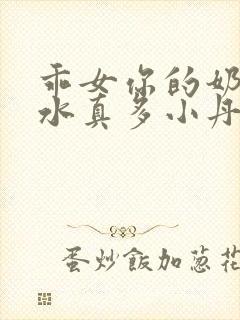 乖女你的奶
水真多小丹
蛋炒飯加葱花